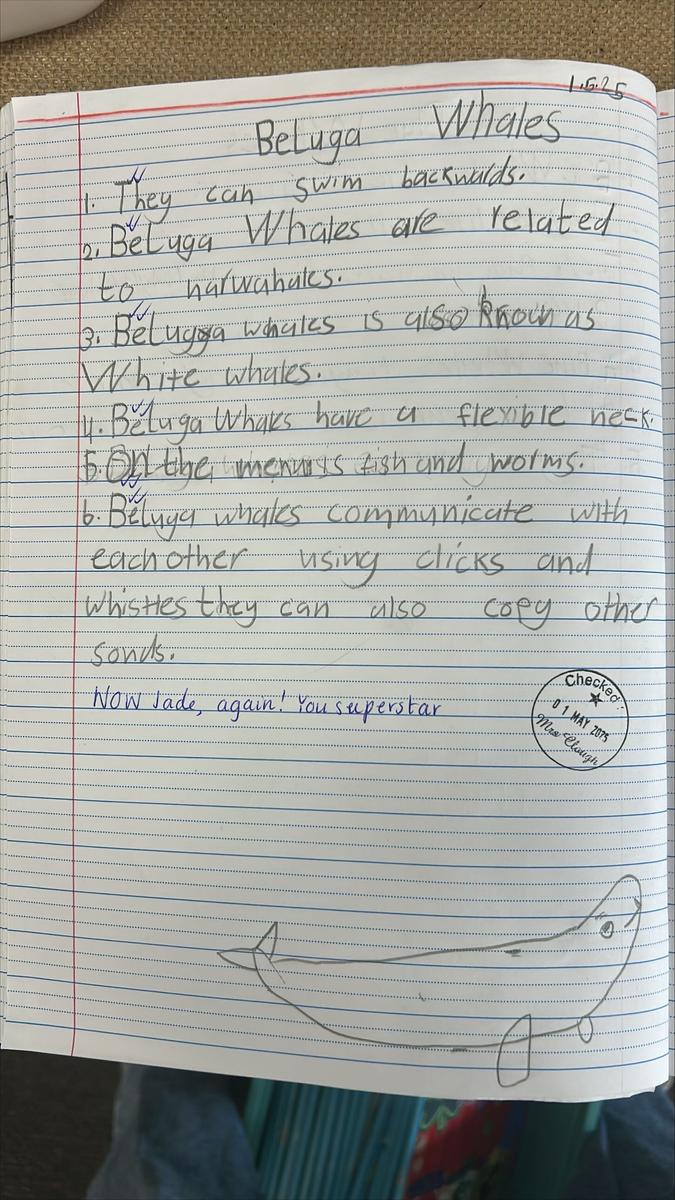 1.5.25
Beluga Whales
1. They can swim backwalds.
2. Beluga Whales are related
to narwahales.
3. Belugga whales is also known as
White whales.
4. Beluga Whales have a flexible neck.
5. On the menu is fish and worms.
6. Beluga whales communicate with
each other using clicks and
whistles they can also copy other
sonds.
Now Jade, again! You superstar
Checked
01 MAY 2025
Mrs Clough